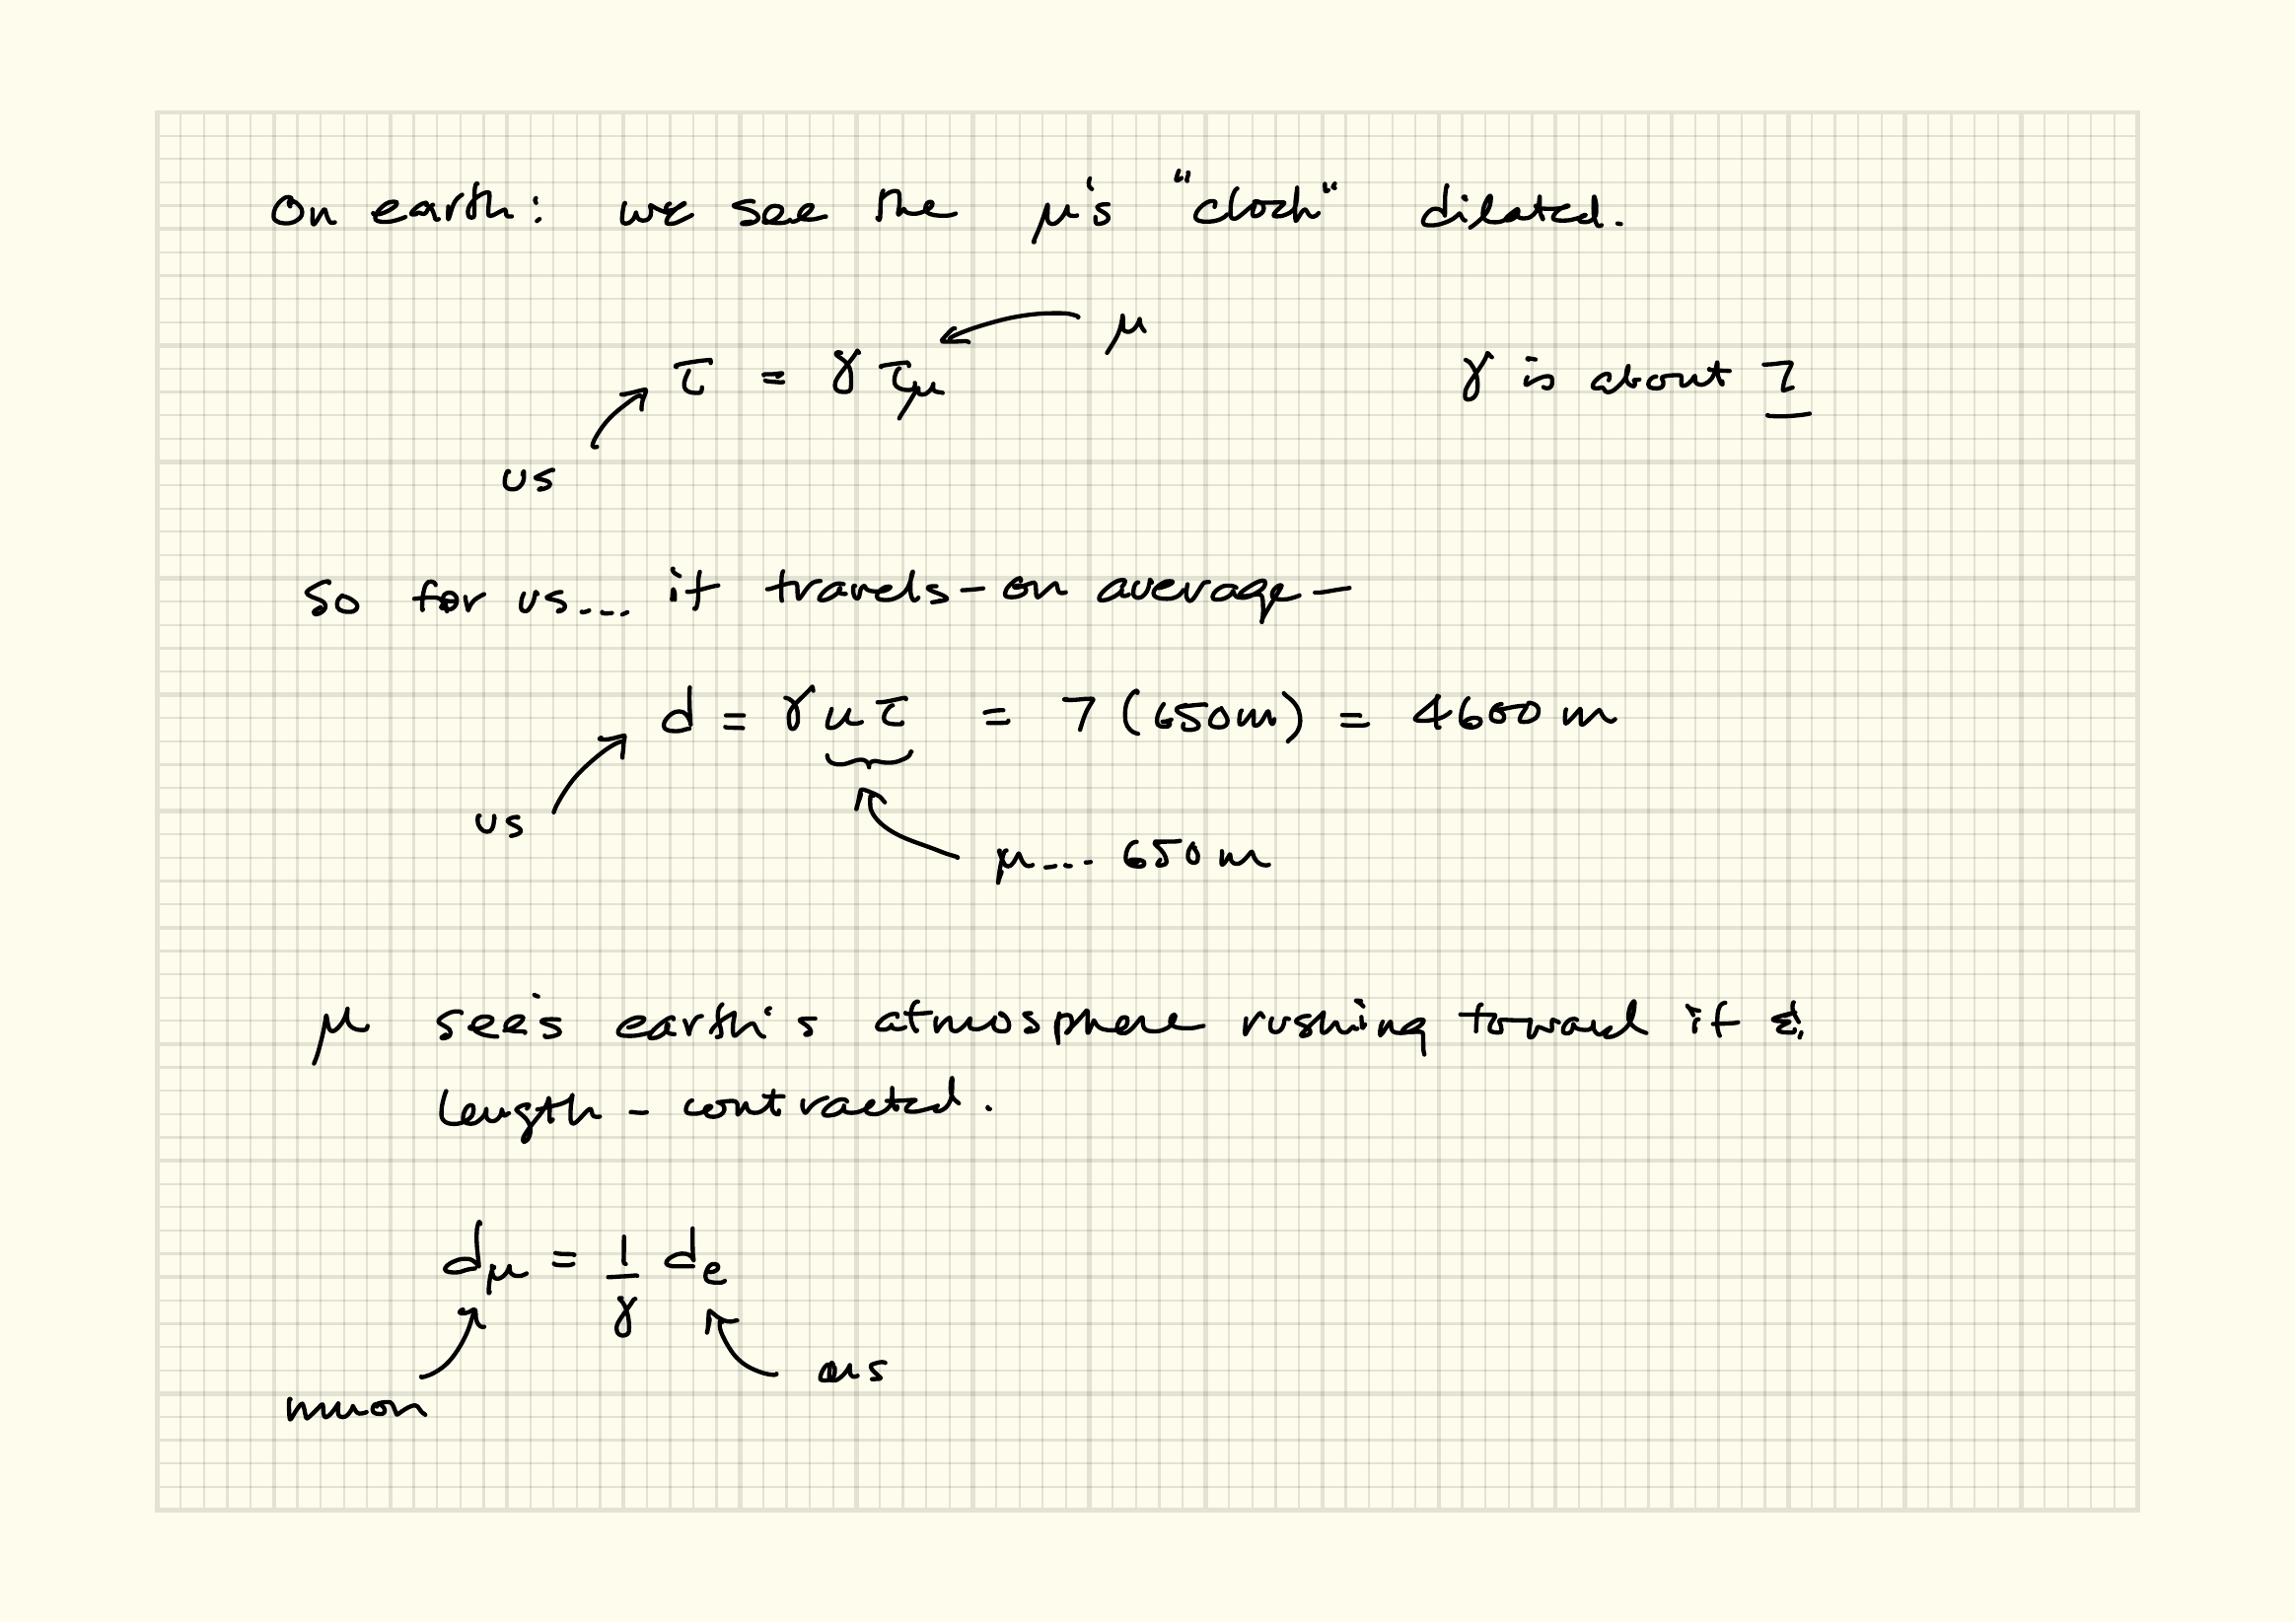 On earth: we see the μ's "clock" dilated.
μ
τ = γ τμ
γ is about 7
us
So for us... it travels - on average -
d = γ u τ = 7 (650m) = 4600 m
us
μ... 650 m
μ sees earth's atmosphere rushing toward it &
length-contracted.
dμ = 1/γ de
us
muon